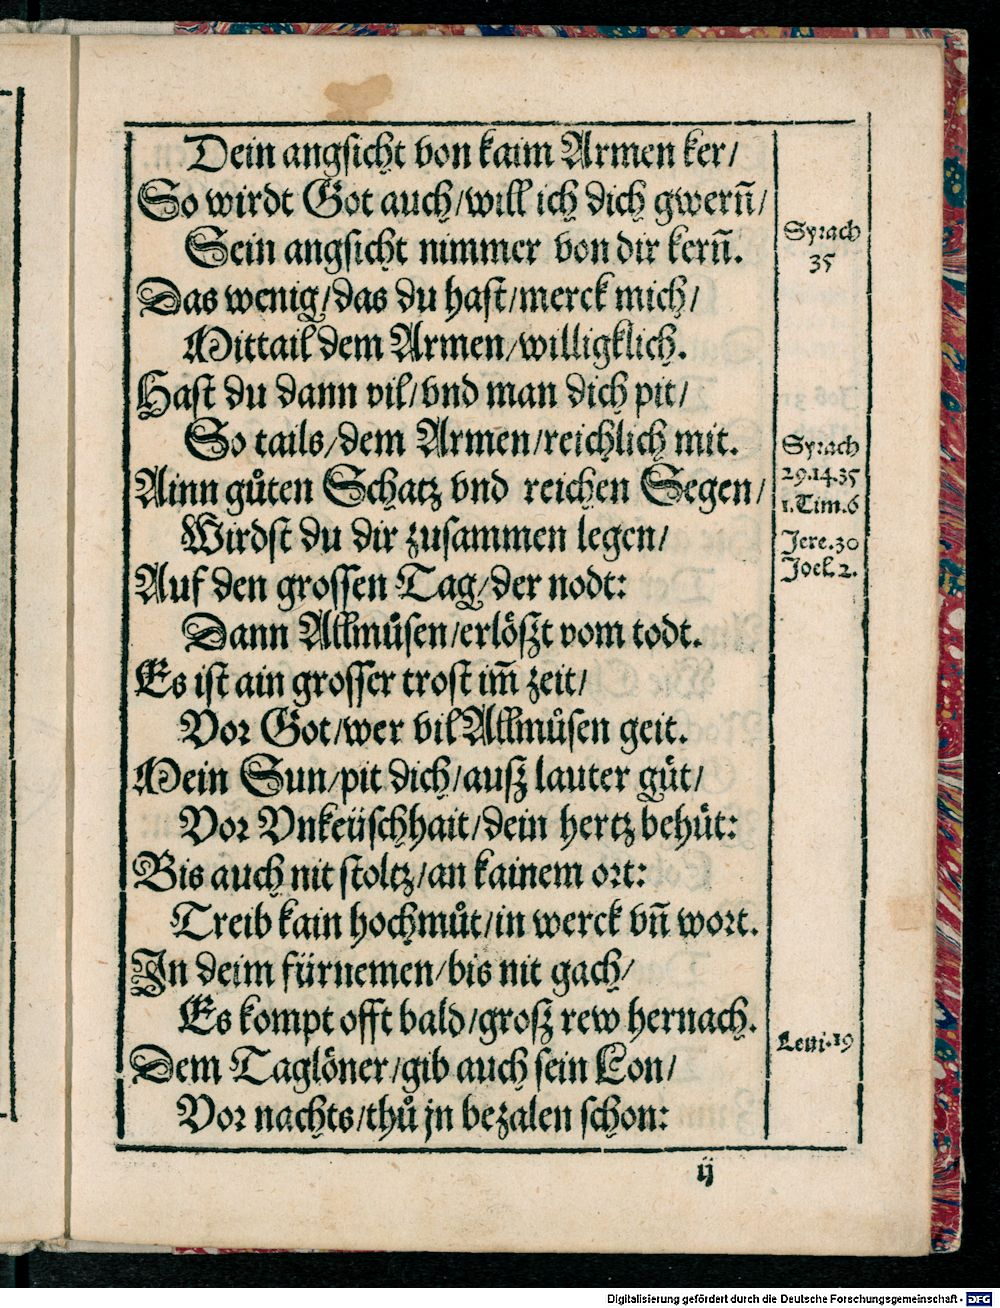 Dein angsicht von kaim Armen ker/
So wirdt Got auch/will ich dich gwern̄/
Sein angsicht nimmer von dir kern̄.
Das wenig/das du hast/merck mich/
Mittail dem Armen/willigklich.
Hast du dann vil/vnd man dich pit/
So tails/dem Armen/reichlich mit.
Ainn gůten Schatz vnd reichen Segen/
Wirdst du dir zusammen legen/
Auf den grossen Tag/der nodt:
Dann Allmůsen/erlößt vom todt.
Es ist ain grosser trost im̄ zeit/
Vor Got/wer vil Allmůsen geit.
Mein Sun/pit dich/auß lauter güt/
Vor Vnkeüschhait/dein hertz behüt:
Bis auch nit stoltz/an kainem ort:
Treib kain hochmůt/in werck vn̄ wort.
In deim fürnemen/bis nit gach/
Es kompt offt bald/groß rew hernach.
Dem Taglöner/gib auch sein Lon/
Vor nachts/thů jn bezalen schon:
Syrach
35
Syrach
29.14.35
1.Tim.6
Jere.30
Joel.2.
Leui.19
ij
Digitalisierung gefördert durch die Deutsche Forschungsgemeinschaft - DFG